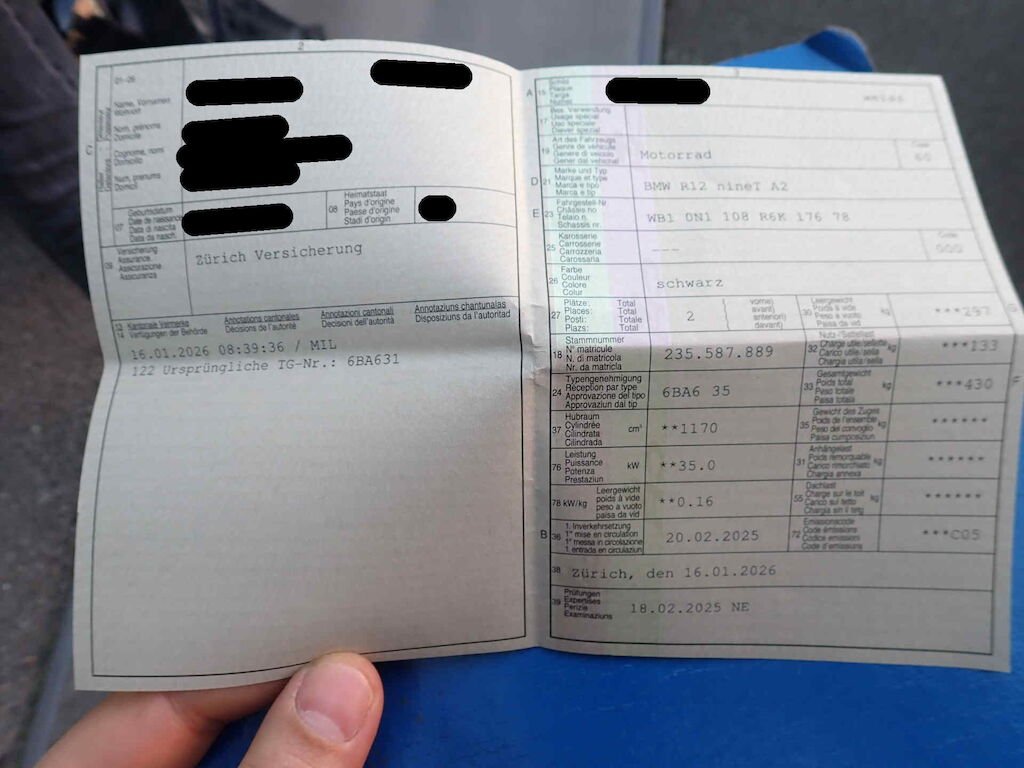 2
01-06
Name, Vornamen
Wohnort
Nom, prénoms
Domicile
Cognome, nomi
Domicilio
Num, prenums
Domicil
C
07
Geburtsdatum
Date de naissance
Data di nascita
Data da nasch.
08
Heimatstaat
Pays d'origine
Paese d'origine
Stadi d'origin
09
Versicherung
Assurance
Assicurazione
Assicuranza
Zürich Versicherung
13
14
Kantonale Vermerke
Verfügungen der Behörde
Annotations cantonales
Décisions de l'autorité
Annotazioni cantonali
Decisioni dell'autorità
Annotaziuns chantunalas
Disposiziuns da l'autoritad
16.01.2026 08:39:36 / MIL
122 Ursprüngliche TG-Nr.: 6BA631
3
A 15
Schild
Plaque
Targa
Numer
17
Bes. Verwendung
Usage spécial
Uso speciale
Diever spezial
19
Art des Fahrzeugs
Genre de véhicule
Genere di veicolo
Gener dal vehichel
Motorrad
Code
60
D 21
Marke und Typ
Marque et type
Marca e tipo
Marca e tip
BMW R12 nineT A2
E 23
Fahrgestell-Nr.
Châssis no
Telaio n.
Schassis nr.
WB1 0N1 108 R6K 176 78
25
Karosserie
Carrosserie
Carrozzeria
Carossaria
---
Code
000
26
Farbe
Couleur
Colore
Colur
schwarz
27
Plätze: Total
Places: Total
Posti: Totale
Plazs: Total
2
vorne)
avant)
anteriori)
davant)
30
Leergewicht
Poids à vide
Peso a vuoto
Paisa da vid
kg
***297
18
Stammnummer
N° matricule
N. di matricola
Nr. da matricla
235.587.889
32
Nutz-/Sattellast
Charge utile/sellette
Carico utile/sella
Chargia utila/sella
kg
***133
24
Typengenehmigung
Réception par type
Approvazione del tipo
Approvaziun dal tip
6BA6 35
33
Gesamtgewicht
Poids total
Peso totale
Paisa totala
kg
***430
37
Hubraum
Cylindrée
Cilindrata
Cilindrada
cm³
**1170
35
Gewicht des Zuges
Poids de l'ensemble
Peso del convoglio
Paisa cumposiziun
kg
******
76
Leistung
Puissance
Potenza
Prestaziun
kW
**35.0
31
Anhängelast
Poids remorquable
Carico rimorchiato
Chargia annexa
kg
******
78 kW/kg
Leergewicht
poids à vide
peso a vuoto
paisa da vid
**0.16
55
Dachlast
Charge sur le toit
Carico sul tetto
Chargia sin il tetg
kg
******
B 36
1. Inverkehrsetzung
1re mise en circulation
1a messa in circolazione
1. entrada en circulaziun
20.02.2025
72
Emissionscode
Code émissions
Codice emissioni
Code d'emissiuns
***C05
38
Zürich, den 16.01.2026
39
Prüfungen
Expertises
Perizie
Examinaziuns
18.02.2025 NE